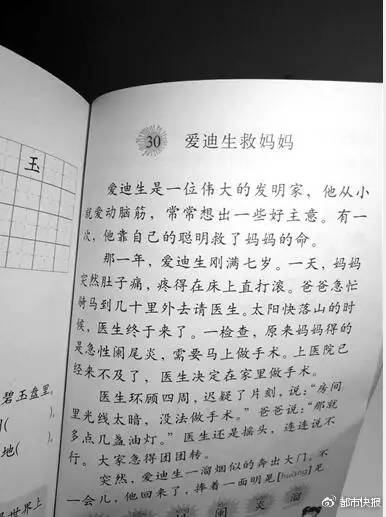 玉
碧玉盘里。
(    )。
地(    )。
界世界上
30 爱迪生救妈妈
爱迪生是一位伟大的发明家，他从小
就爱动脑筋，常常想出一些好主意。有一
次，他靠自己的聪明救了妈妈的命。
那一年，爱迪生刚满七岁。一天，妈妈
突然肚子痛，疼得在床上直打滚。爸爸急忙
骑马到几十里外去请医生。太阳快落山的时
候，医生终于来了。一检查，原来妈妈得的
是急性阑尾炎，需要马上做手术。上医院已
经来不及了，医生决定在家里做手术。
医生环顾四周，迟疑了片刻，说：“房间
里光线太暗，没法做手术。”爸爸说：“那就
多点几盏油灯。”医生还是摇头，连连说不
行。大家急得团团转。
突然，爱迪生一溜烟似的奔出大门。不
一会儿，他回来了，捧着一面明晃[huǎng]晃
阑 炎 溜
都市快报